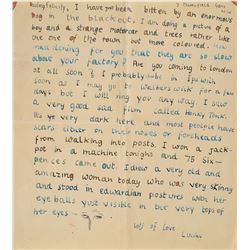 Darling Felicity, I have just been bitten by an enormous
dog in the blackout. I am doing a picture of a
boy and a strange motorcar and trees rather like
the one of the man but more coloured. How
maddening for you that they are so slow
about your factory! Are you coming to london
at all soon & I probably be in Ipswich
soon as I may go to Walberswick for a few
days but I will ring you any way. I saw
a very good sea film called Honky Tonk.
Its very dark here and most people have
scars either on their noses or foreheads
from walking into posts. I won a jack-
pot in a machine tonight and 75 six-
pences came out. I drew a very old and
amazing woman today who was very skinny
and stood in edwardian postures with her
eye balls just visible in the very top of
her eyes
lots of love
Lucian